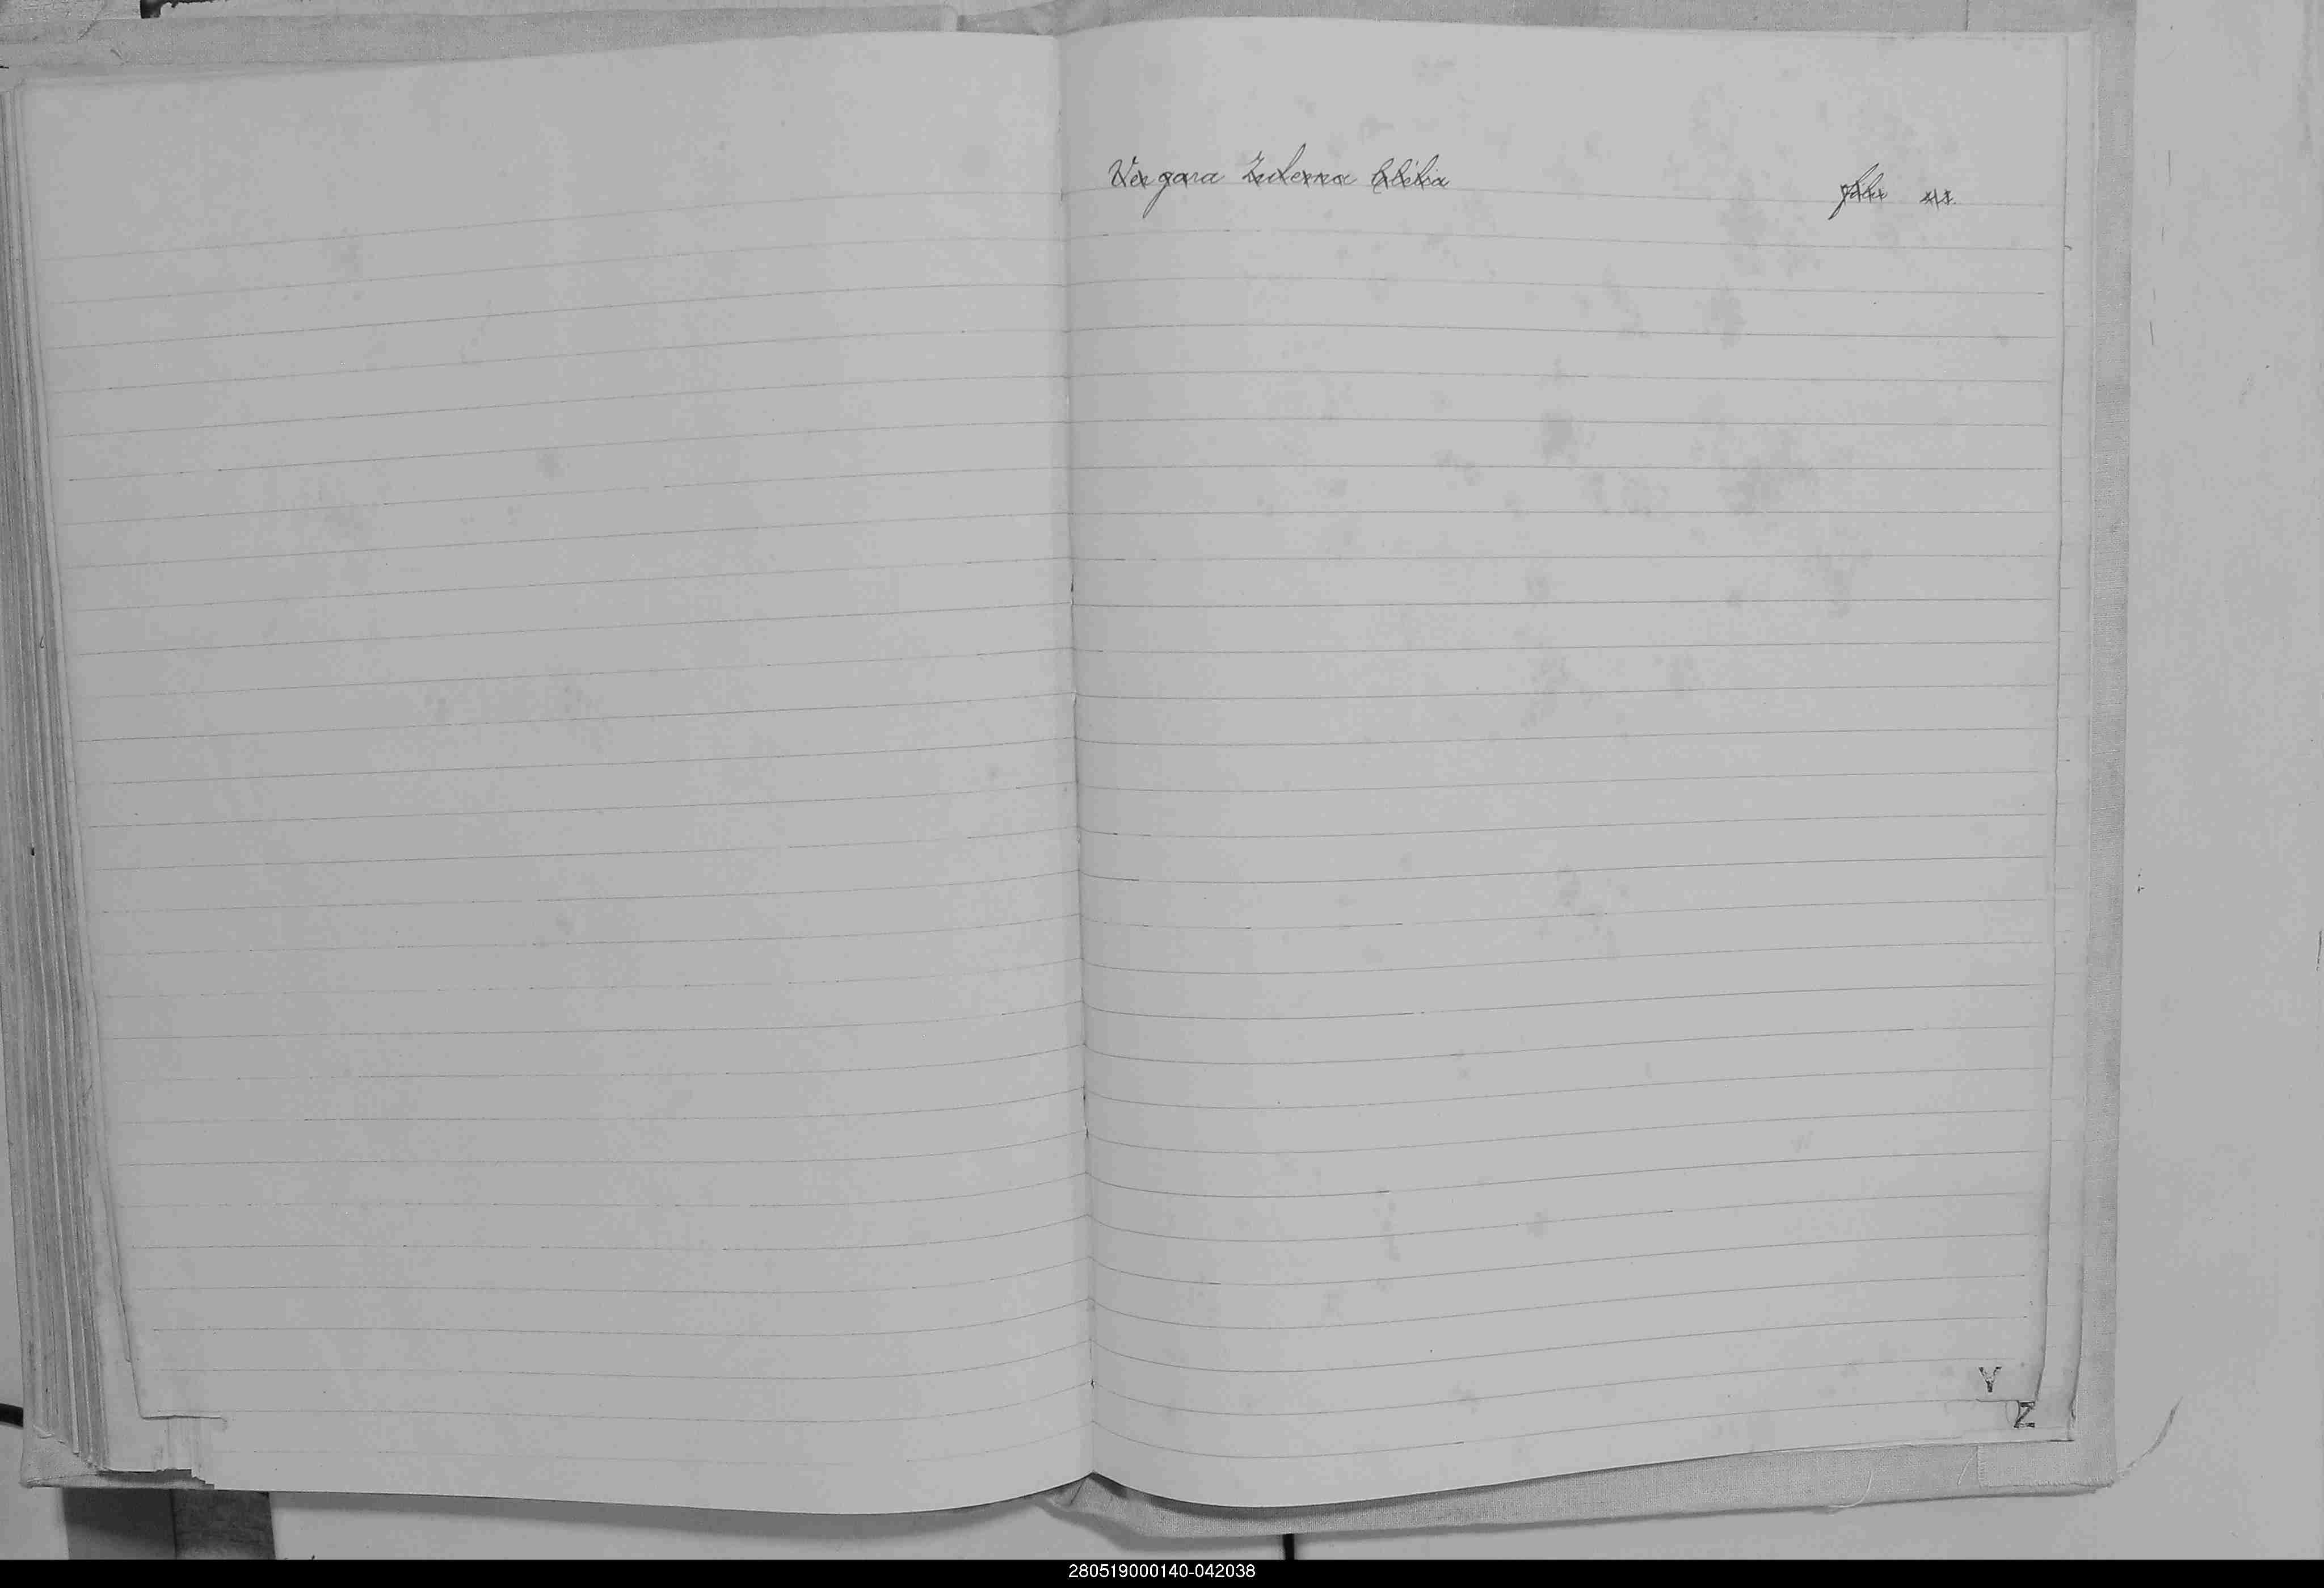 Vergara Zulema Clelia
Y
Z
280519000140-042038